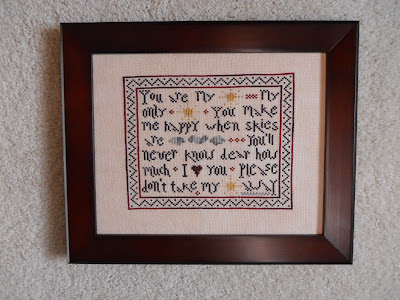 You are my My
only You make
me happy when skies
are You'll
never know dear how
much I You Please
don't take my away